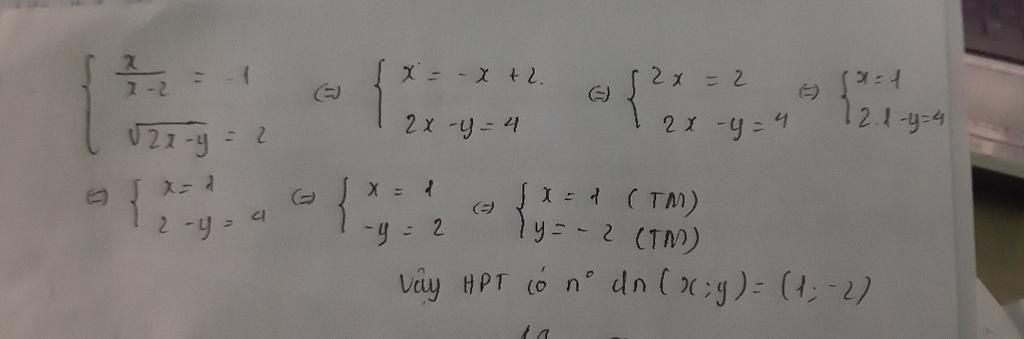 { x/(x-2) = -1 ; √(2x-y) = 2 (=) { x = -x + 2. ; 2x - y = 4 (=) { 2x = 2 ; 2x - y = 4 (=) { x = 1 ; 2.1 - y = 4
(=) { x = 1 ; 2 - y = 4 (=) { x = 1 ; -y = 2 (=) { x = 1 (TM) ; y = -2 (TM)
Vậy HPT có n° dn (x;y) = (1;-2)